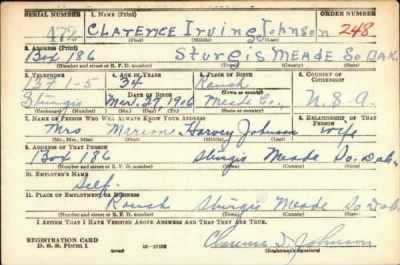 SERIAL NUMBER 1. NAME (Print) ORDER NUMBER
472 CLARENCE Irving Johnson 248
(First) (Middle) (Last)
2. ADDRESS (Print)
Box 186 Sturgis MEADE SO DAK.
(Number and street or R. F. D. number) (Town) (County) (State)
3. TELEPHONE 4. AGE IN YEARS 5. PLACE OF BIRTH 6. COUNTRY OF CITIZENSHIP
137-1-5 34 Ranch
(Town or county)
Sturgis Mar. 27 1906 Meade Co., U. S. A.
(Exchange) (Number) (Mo.) (Day) (Yr.) (State or country)
7. NAME OF PERSON WHO WILL ALWAYS KNOW YOUR ADDRESS 8. RELATIONSHIP OF THAT PERSON
Mrs Harvey Johnson Wife
(Mr., Mrs., Miss) (First) (Middle) (Last)
9. ADDRESS OF THAT PERSON
Box 186 Sturgis Meade So. Dak.
(Number and street or R. F. D. number) (Town) (County) (State)
10. EMPLOYER'S NAME
Self.
11. PLACE OF EMPLOYMENT OR BUSINESS
Ranch Sturgis Meade So Dak.
(Number and street or R. F. D. number) (Town) (County) (State)
I AFFIRM THAT I HAVE VERIFIED ABOVE ANSWERS AND THAT THEY ARE TRUE.
REGISTRATION CARD
D. S. S. Form 1 (over) 16-17105 Clarence I. Johnson
(Registrant's signature)